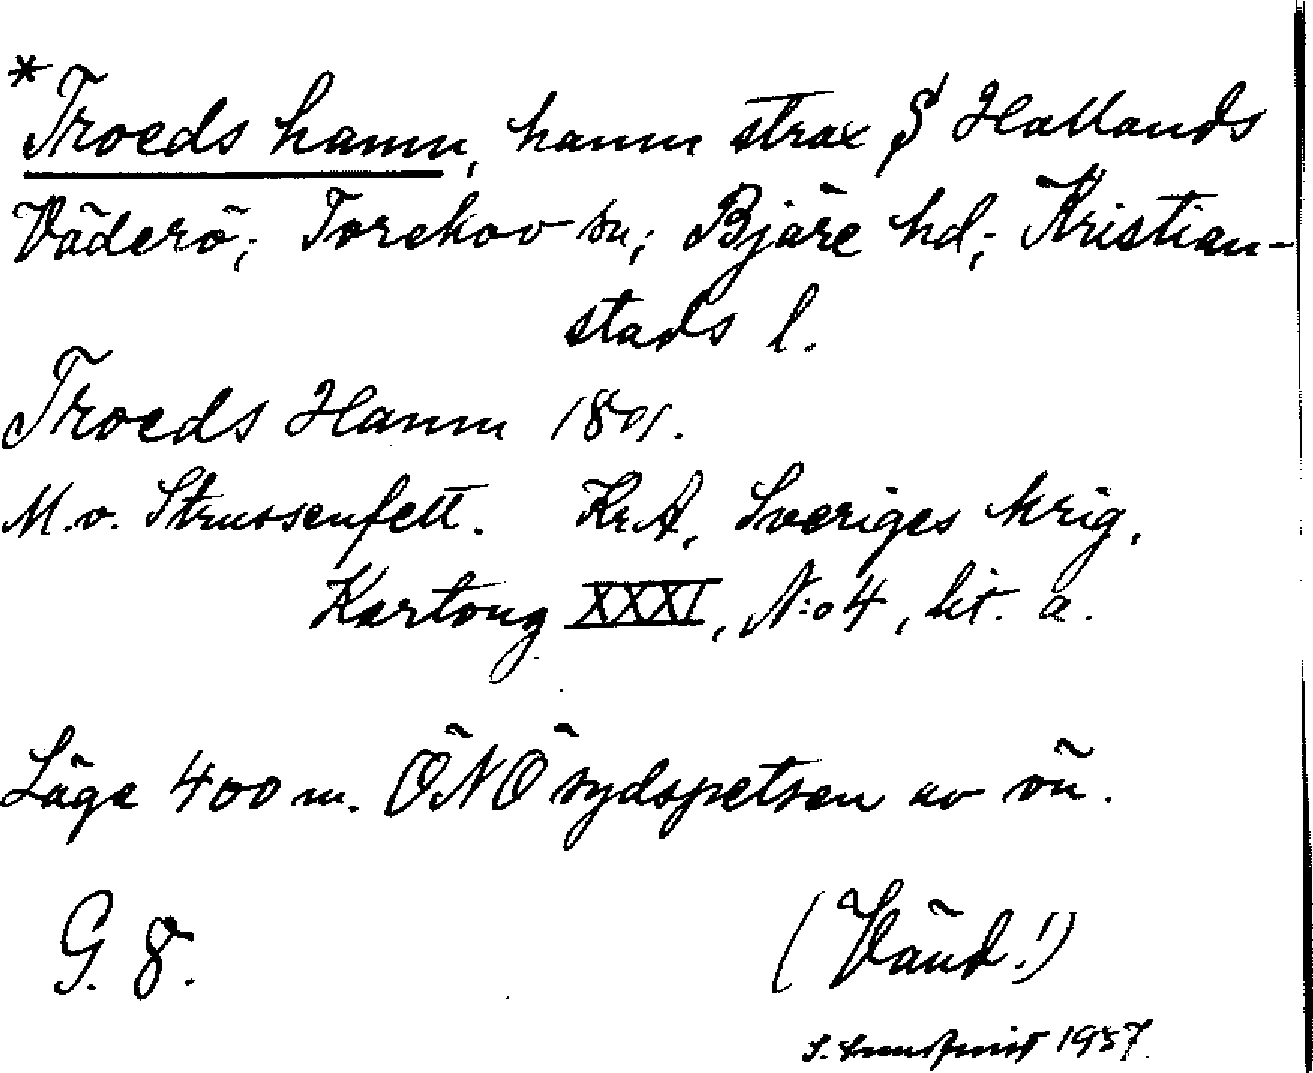 *Troeds hamn, hamn strax S Hallands
Väderö; Torekov sn; Bjäre hd; Kristian-
stads l.
Troeds Hamn 1801.
M. v. Strussenfelt. Kr.A. Sveriges krig,
Kartong XXXI, N:o 4, lit. a.
Läge 400 m. ÖNÖ sydspetsen av ön.
G. 8.
(Vänd!)
1957